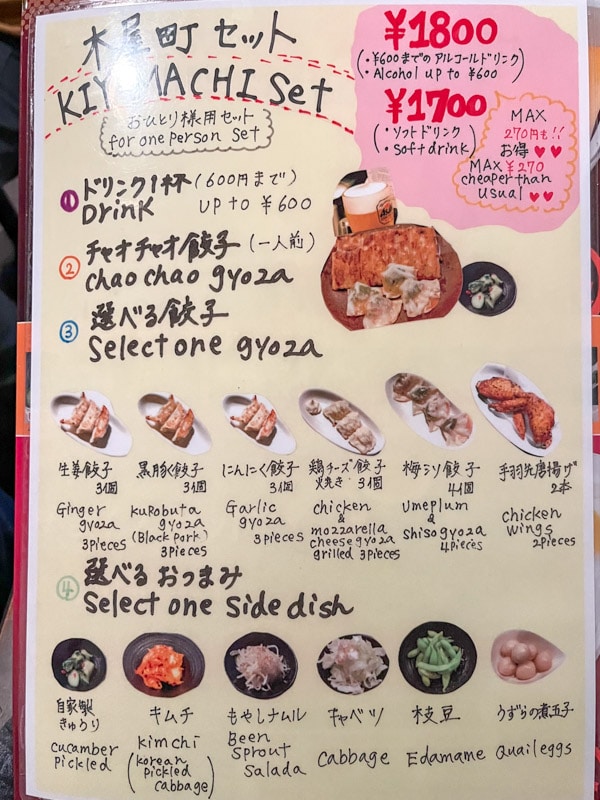 木屋町セット
KIYAMACHI Set
おひとり様用セット
for one person set
¥1800
(・¥600までのアルコールドリンク)
(・Alcohol up to ¥600)
¥1700
(・ソフトドリンク)
(・soft drink)
MAX
270円も!!
お得♥♥
MAX ¥270
cheaper than
usual ♥♥
① ドリンク1杯 (600円まで)
Drink UP to ¥600
② チャオチャオ餃子 (一人前)
chao chao gyoza
③ 選べる餃子
Select one gyoza
生姜餃子
3個
Ginger
gyoza
3pieces
黒豚餃子
3個
kuRobuta
gyoza
(Black pork)
3pieces
にんにく餃子
3個
Garlic
gyoza
3pieces
鶏チーズ餃子
焼き 3個
chicken
&
mozzarella
cheese gyoza
grilled 3pieces
梅シソ餃子
4個
Umeplum
&
shiso gyoza
4pieces
手羽先唐揚げ
2本
chicken
wings
2pieces
④ 選べるおつまみ
Select one side dish
自家製
きゅうり
cucamber
pickled
キムチ
kimchi
(korean
pickled
cabbage)
もやしナムル
Been
Sprout
Salada
キャベツ
Cabbage
枝豆
Edamame
うずらの煮玉子
Quail eggs